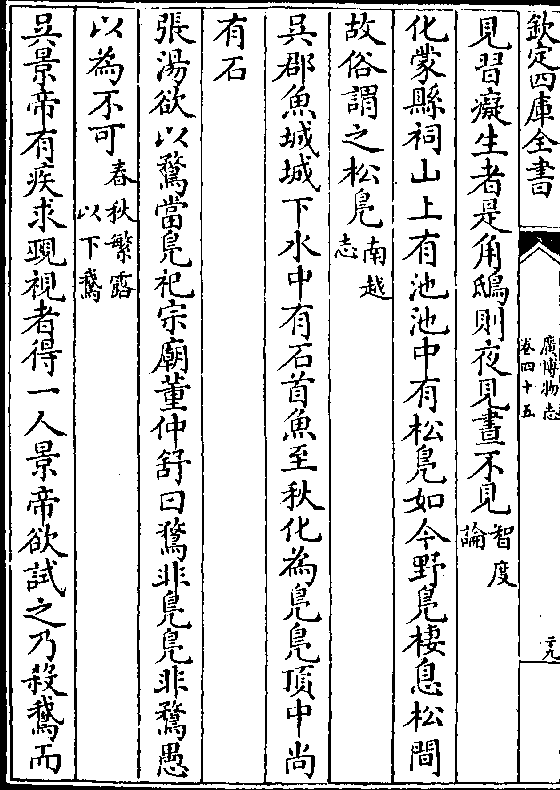 欽定四庫全書
廣博物志
卷四十五
元
見習癡生者是角鴟則夜見晝不見智度
論
化蒙縣祠山上有池池中有松鳧如今野鳧棲息松間
故俗謂之松鳧南越
志
吳郡魚城城下水中有石首魚至秋化為鳧鳧頂中尚
有石
張湯欲以鶩當鳧祀宗廟董仲舒曰鶩非鳧鳧非鶩愚
以為不可春秋繁露
以下鵞
吳景帝有疾求覡視者得一人景帝欲試之乃殺鵝而